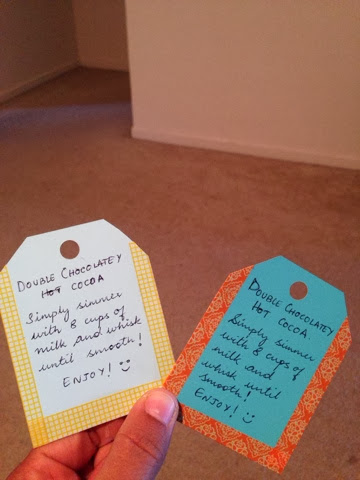 DOUBLE CHOCOLATEY
HOT COCOA
Simply simmer
with 8 cups of
milk and whisk
until smooth!
ENJOY! :)
DOUBLE CHOCOLATEY
HOT COCOA
Simply simmer
with 8 cups of
milk and
whisk until
smooth!
ENJOY! :)